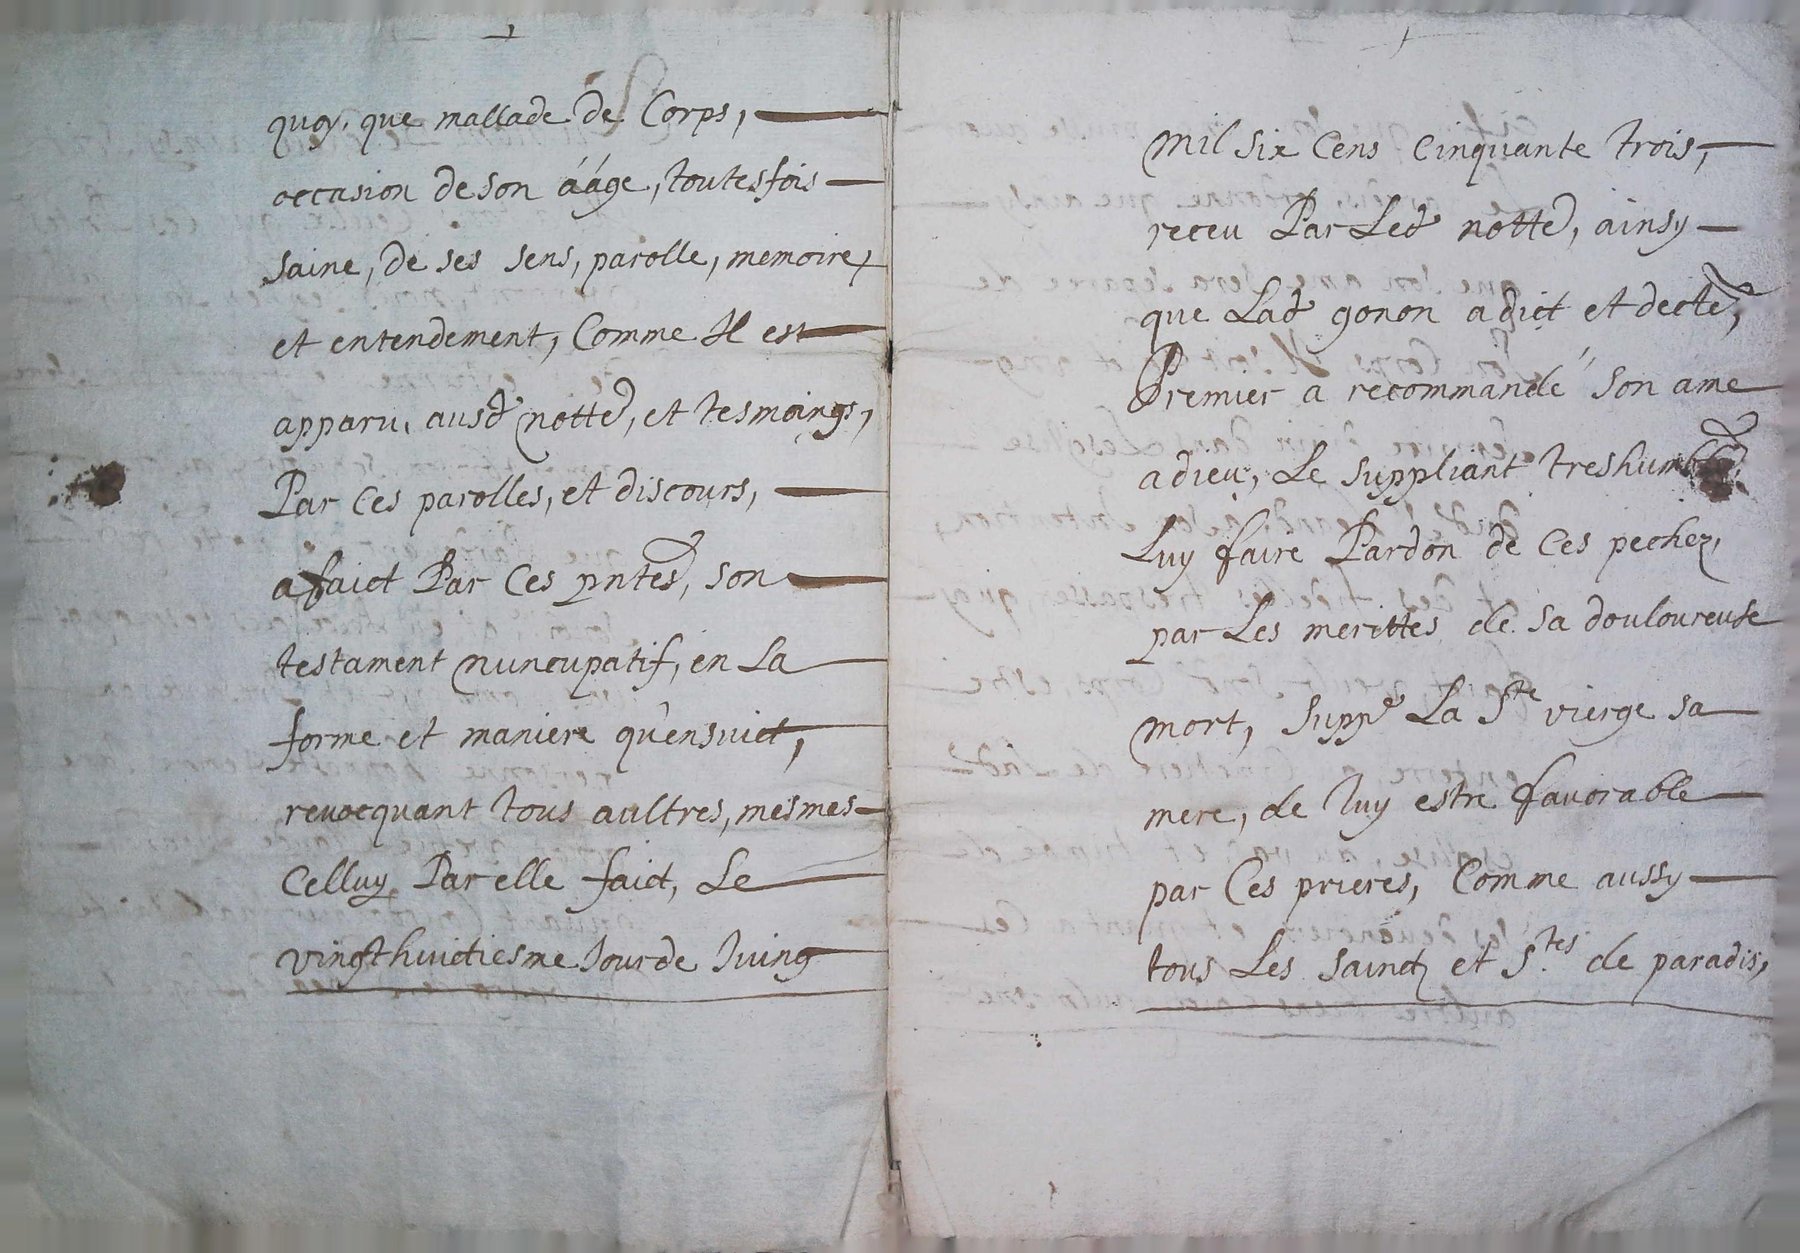 quoy, que mallade de Corps,
occasion de son áage, toutesfois
saine, de ses sens, parolle, memoire,
et entendement, Comme Il est
apparu, ausd notte, et tesmoings,
Par Ces parolles, et discours,
a faict Par Ces pntes, son
testament nuncupatif, en La
forme et maniere qu'ensuict,
revocquant tous aultres, mesmes
Celluy Par elle faict, Le
vingthuictiesme Jour de Juing
mil six Cens Cinquante trois,
receu Par Led notte, ainsy
que Lad gonon a dict et decle,
Premier a recommandé son ame
a dieu, Le suppliant treshumble
Luy faire Pardon de Ces pechez,
par Les merittes de sa douloureuse
mort, suppe La Ste vierge sa
mere, de luy estre favorable
par Ces prieres, Comme aussy
tous Les sainctz et S.tes de paradis,